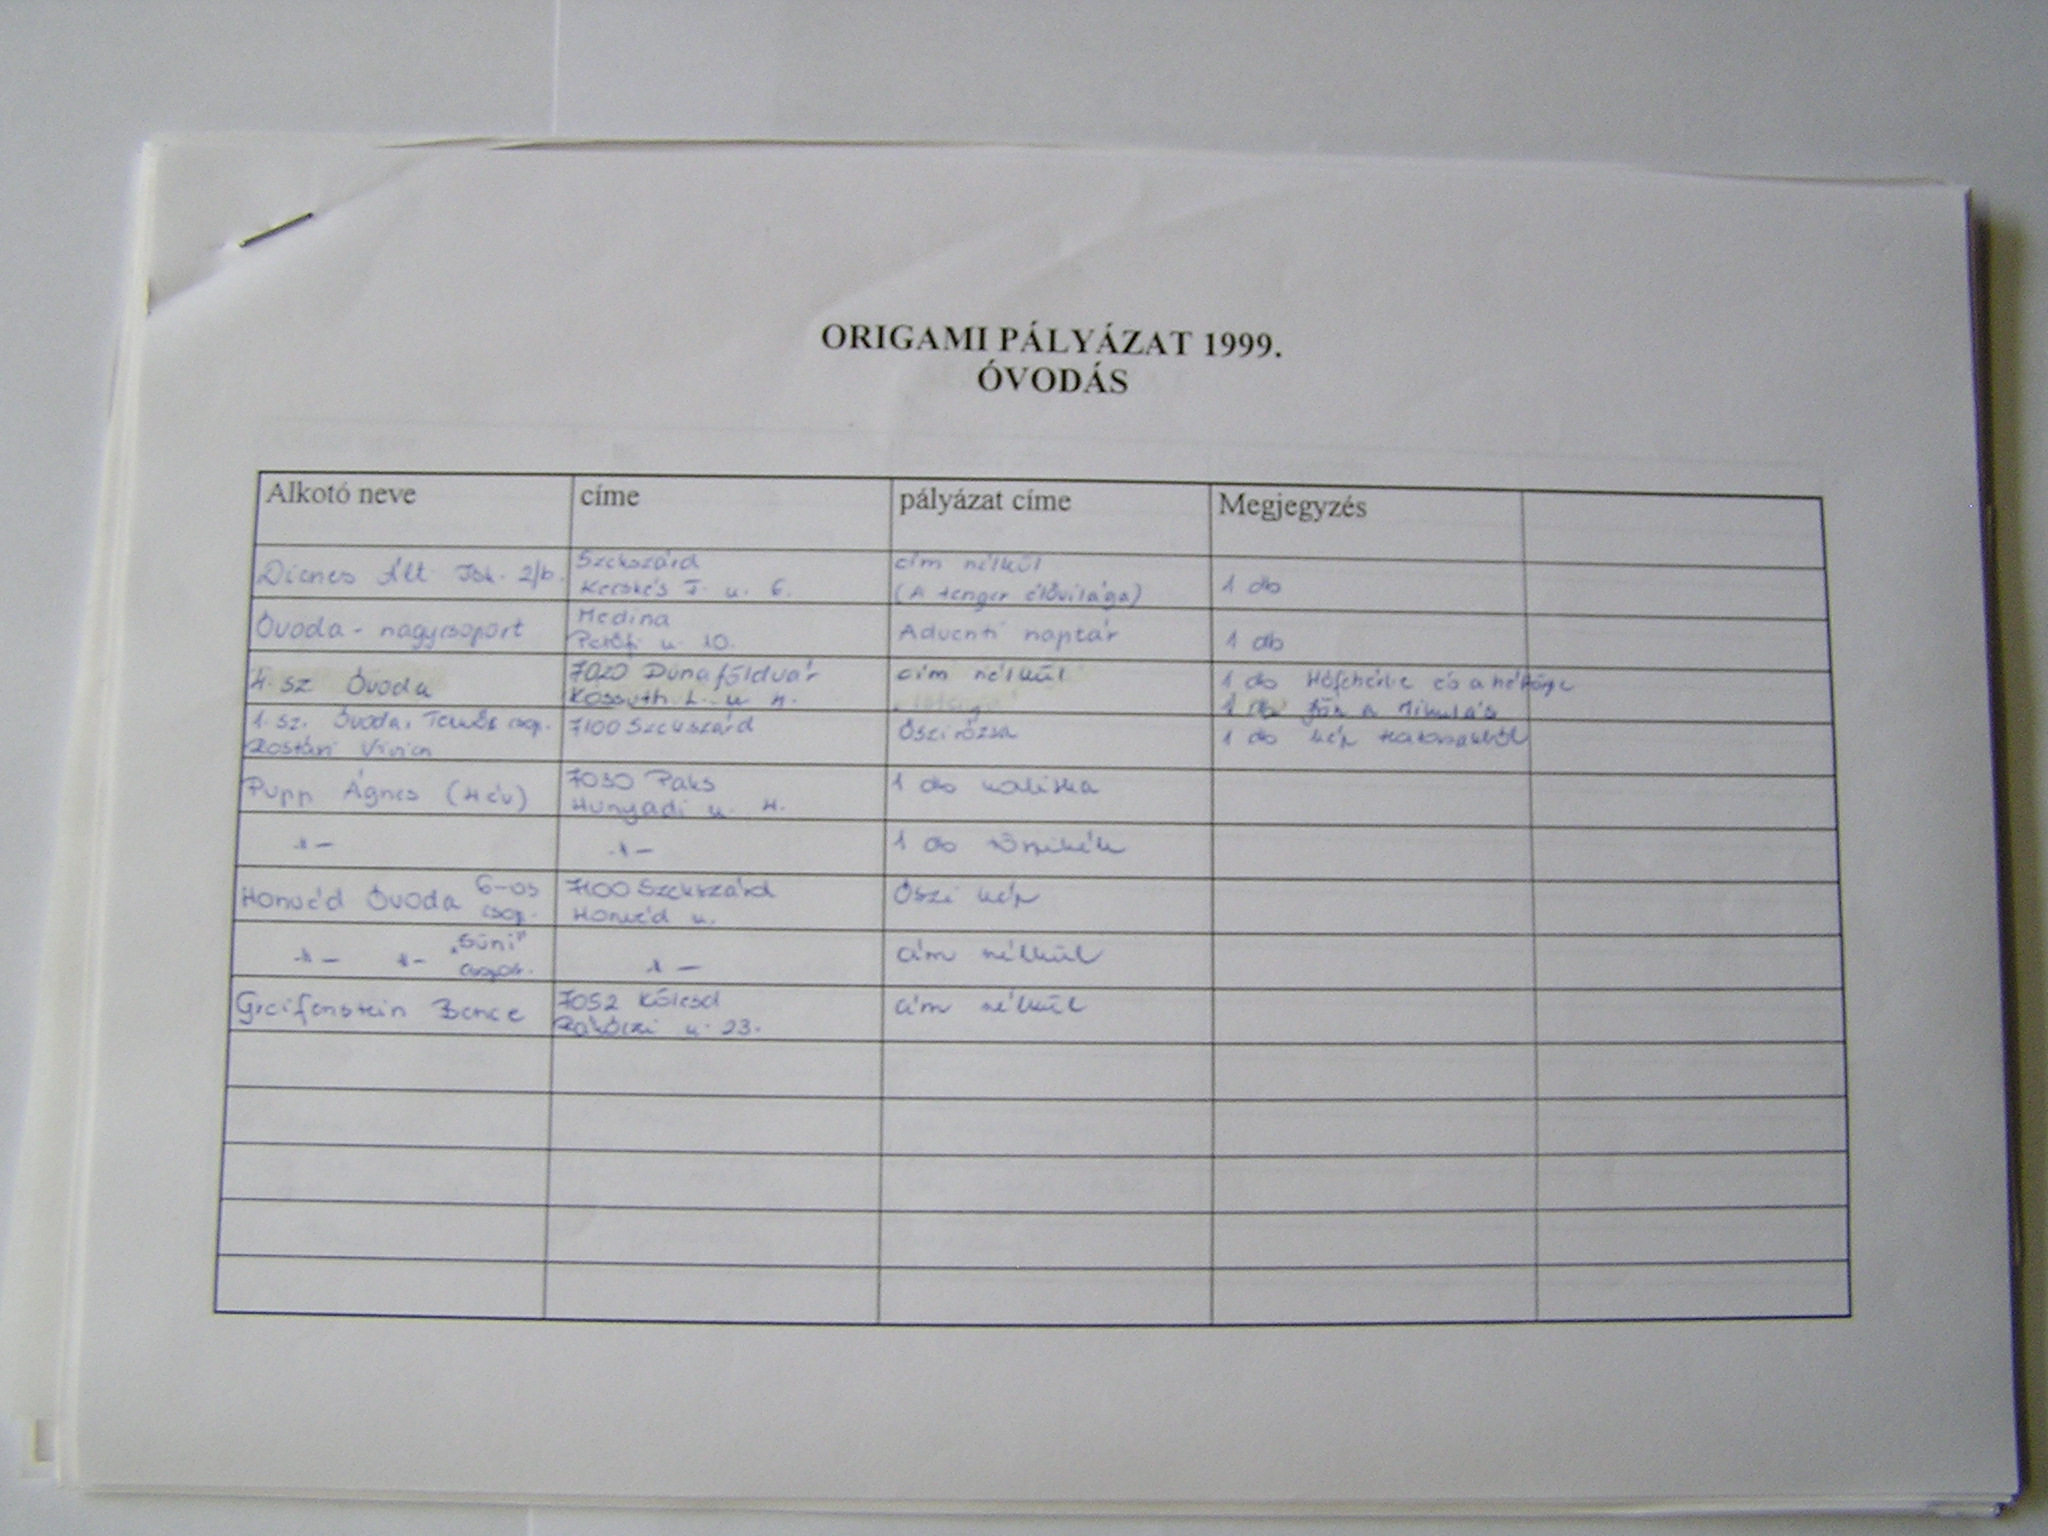 ORIGAMI PÁLYÁZAT 1999.
ÓVODÁS
Alkotó neve címe pályázat címe Megjegyzés
Dienes Ált. Isk. 2/b. Szekszárd cím nélkül
Kecskés F. u. 6. (A tenger élővilága) 1 db
Óvoda - nagycsoport Medina Adventi naptár 1 db
Petőfi u. 10.
4. sz Óvoda 7020 Dunaföldvár cím nélkül 1 db Hófehérke és a héttörpe
Kossuth L. u. 4. 1 db Jön a Mikulás
1. sz. Óvoda, csop. 7100 Szekszárd Őszirózsa 1 db kép
Vivien
Pupp Ágnes (4 év) 7030 Paks 1 db kalitka
Hunyadi u. 4.
-"- -"- 1 db
Honvéd Óvoda 6-os csop. 7100 Szekszárd Őszi kép
Honvéd u.
-"- -"- "Süni" csoport. -"- cím nélkül
Greifenstein Bence 7052 Kölesd cím nélkül
Rákóczi u. 23.